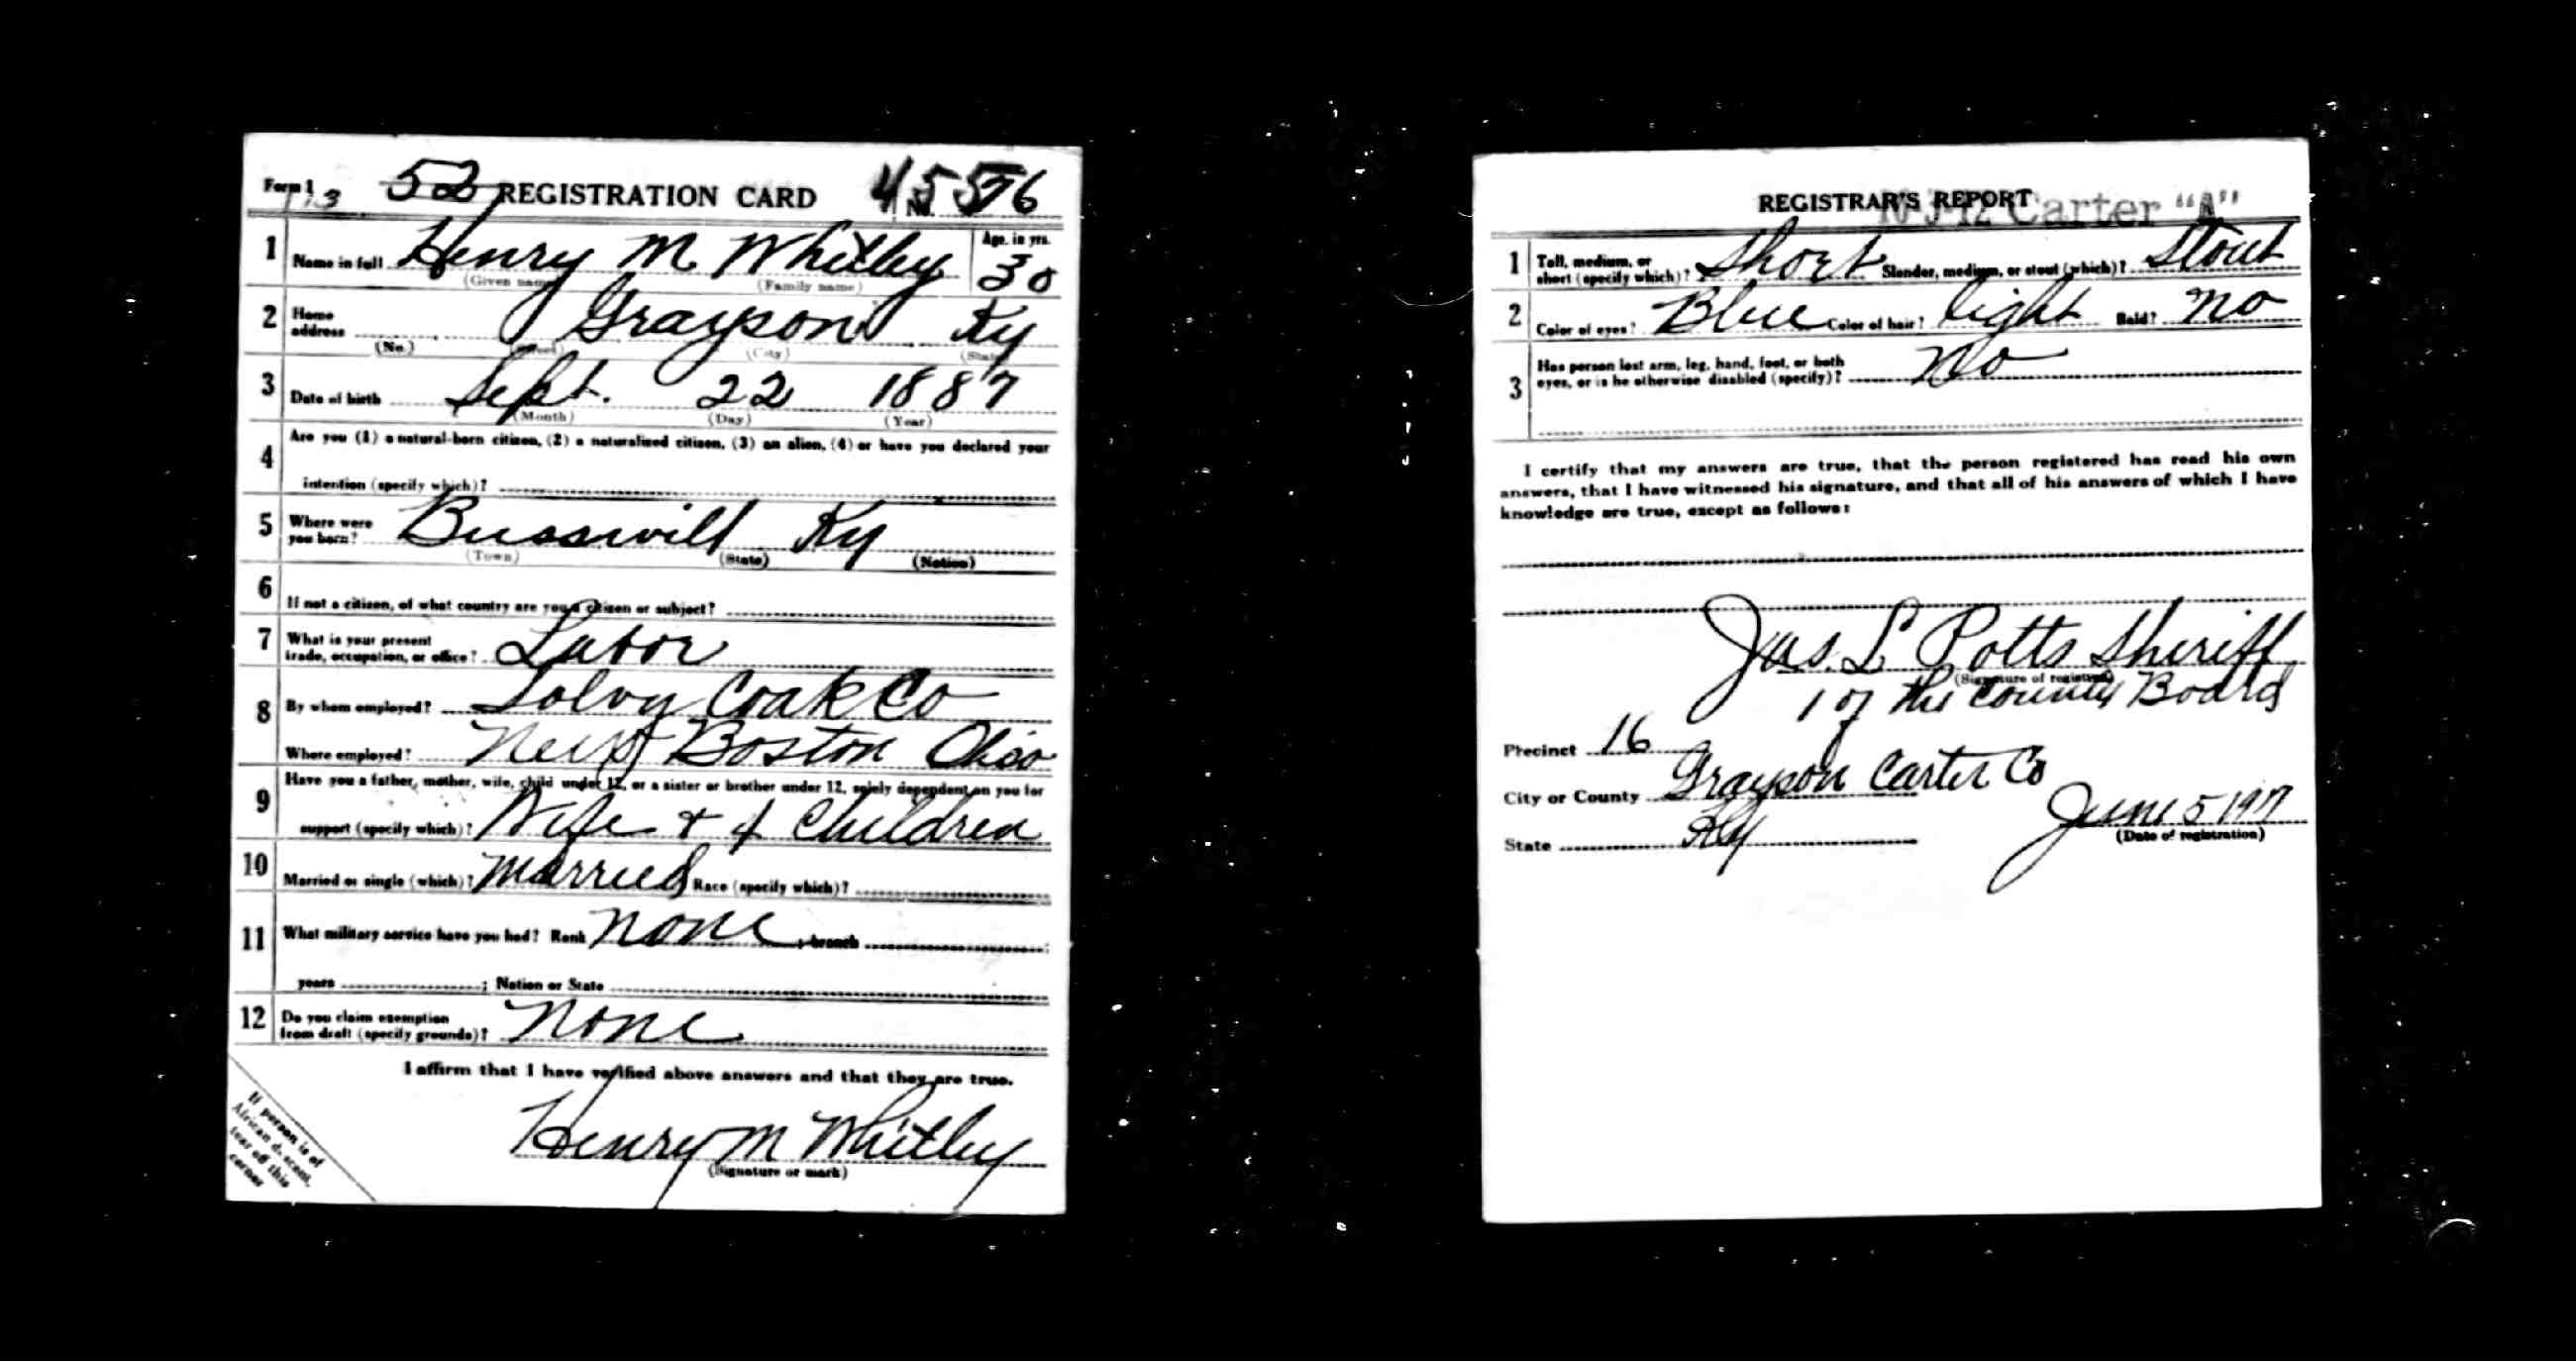 Form 1 52 REGISTRATION CARD No. 576
1 Name in full Henry M Whitley Age, in yrs. 30
(Given name) (Family name)
2 Home address Grayson Ky
(No.) (Street) (City) (State)
3 Date of birth Sept. 22 1887
(Month) (Day) (Year)
4 Are you (1) a natural-born citizen, (2) a naturalized citizen, (3) an alien, (4) or have you declared your
intention (specify which)?
5 Where were you born? Busswill Ky
(Town) (State) (Nation)
6 If not a citizen, of what country are you a citizen or subject?
7 What is your present trade, occupation, or office? Labor
8 By whom employed? Solvy Coak Co
Where employed? New Boston Ohio
9 Have you a father, mother, wife, child under 12, or a sister or brother under 12, solely dependent on you for
support (specify which)? Wife & 4 Children
10 Married or single (which)? Married Race (specify which)?
11 What military service have you had? Rank none ; branch
years ; Nation or State
12 Do you claim exemption from draft (specify grounds)? none
I affirm that I have verified above answers and that they are true.
Henry M Whitley
(Signature or mark)
If person is of
African descent,
tear off this
corner
REGISTRAR'S REPORT
Carter "A"
1 Tall, medium, or short (specify which)? Short Slender, medium, or stout (which)? Stout
2 Color of eyes? Blue Color of hair? light Bald? no
3 Has person lost arm, leg, hand, foot, or both
eyes, or is he otherwise disabled (specify)? No
I certify that my answers are true, that the person registered has read his own
answers, that I have witnessed his signature, and that all of his answers of which I have
knowledge are true, except as follows:
Jas. L Potts Sheriff
(Signature of registrar)
1 of the County Board
Precinct 16
City or County Grayson Carter Co
State Ky
June 5 1917
(Date of registration)